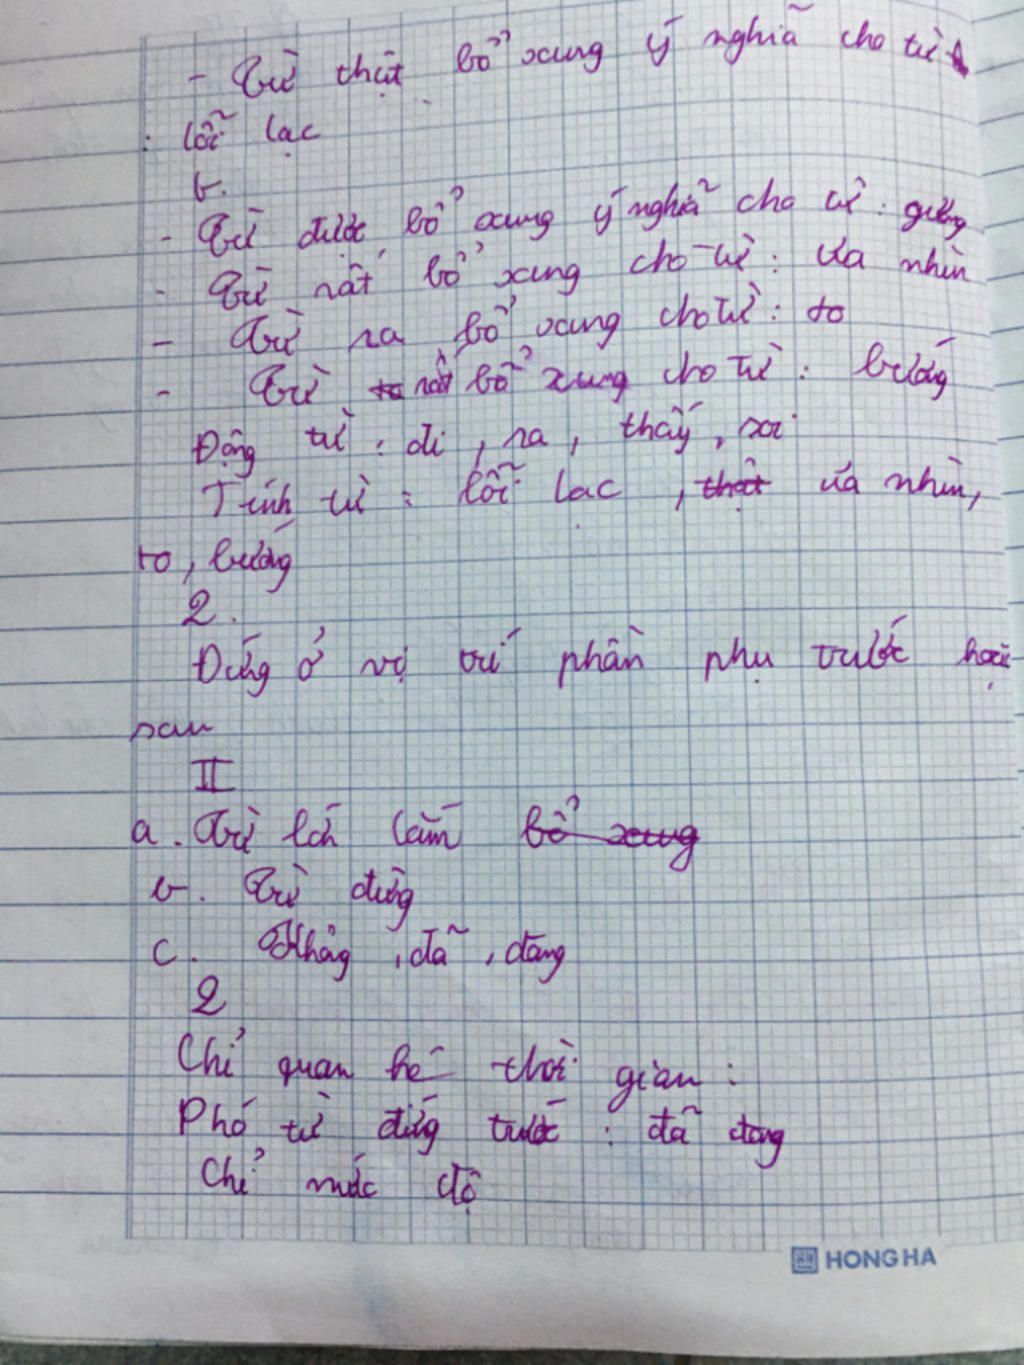 - Từ thật bổ xung ý nghĩa cho từ
: lỗi lạc
b.
- Từ được bổ xung ý nghĩa cho từ : gương
- Từ rất bổ xung cho từ : ưa nhìn
- Từ ra bổ xung cho từ : to
- Từ rất bổ xung cho từ : bướng
Động từ : đi , ra , thấy , soi
Tính từ : lỗi lạc , thật ưa nhìn,
to , bướng
2.
Đứng ở vị trí phần phụ trước hoặc
sau
II
a . Từ lớn lắm bổ xung
b . Từ đừng
c . Không , đã , đang
2
Chỉ quan hệ thời gian :
Phó từ đứng trước : đã đang
Chỉ mức độ
HONG HA